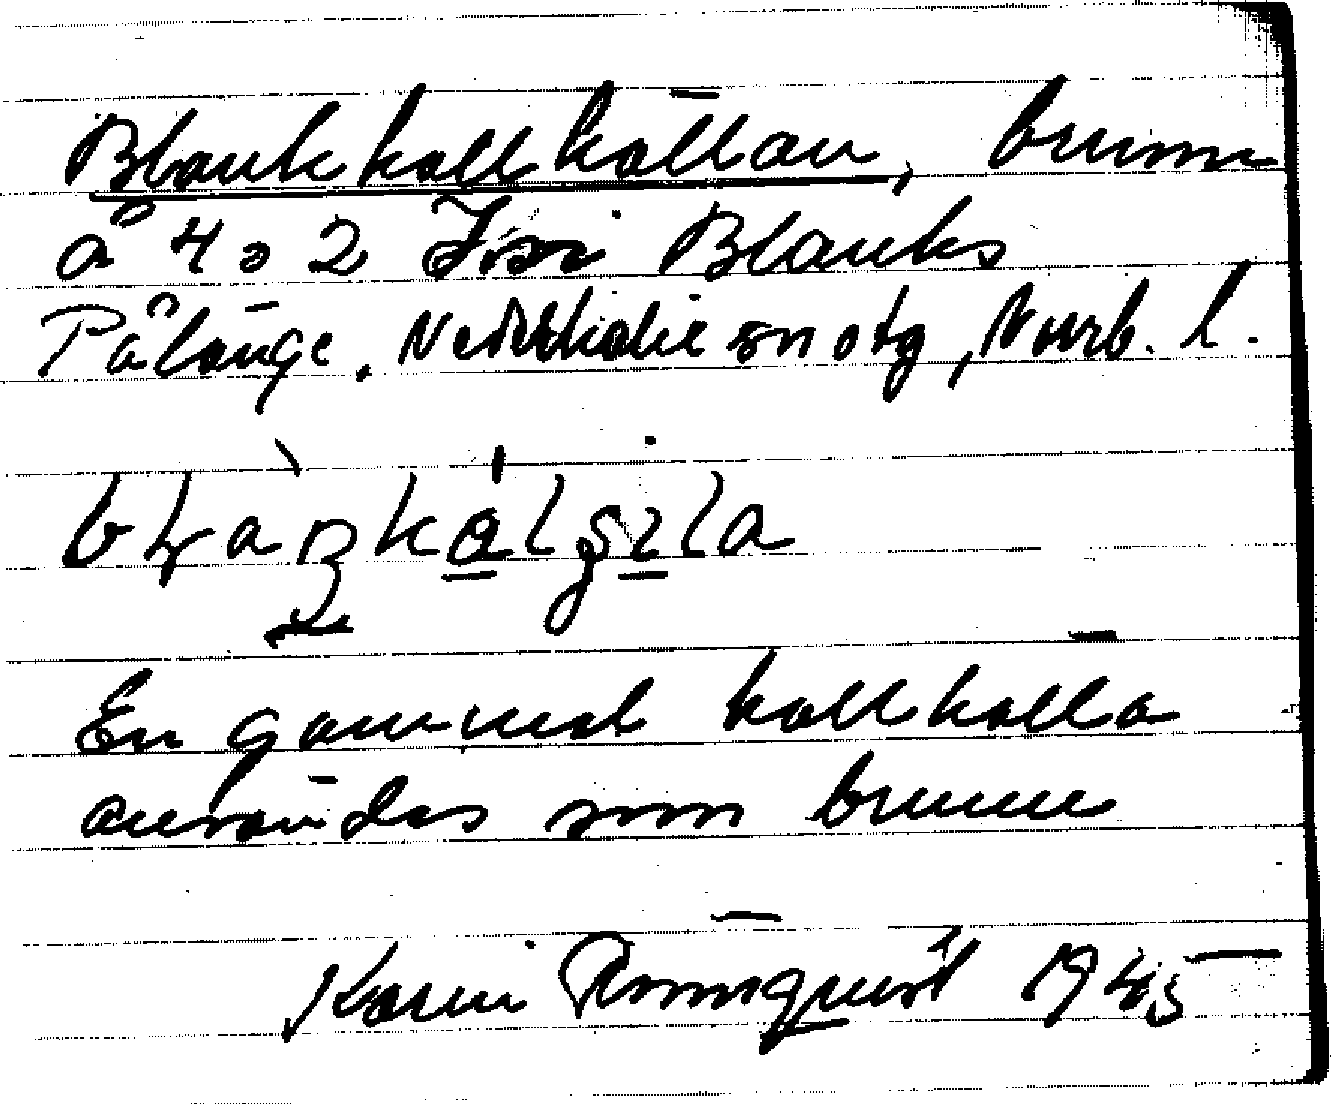 Blankkallkällan, brunn
å 4:2 Jssi Blanks
Pålänge, Nederkalix sn o tg, Norrb. l.
En gammal kallkälla
användes som brunn
Karin Rönnquist 1945